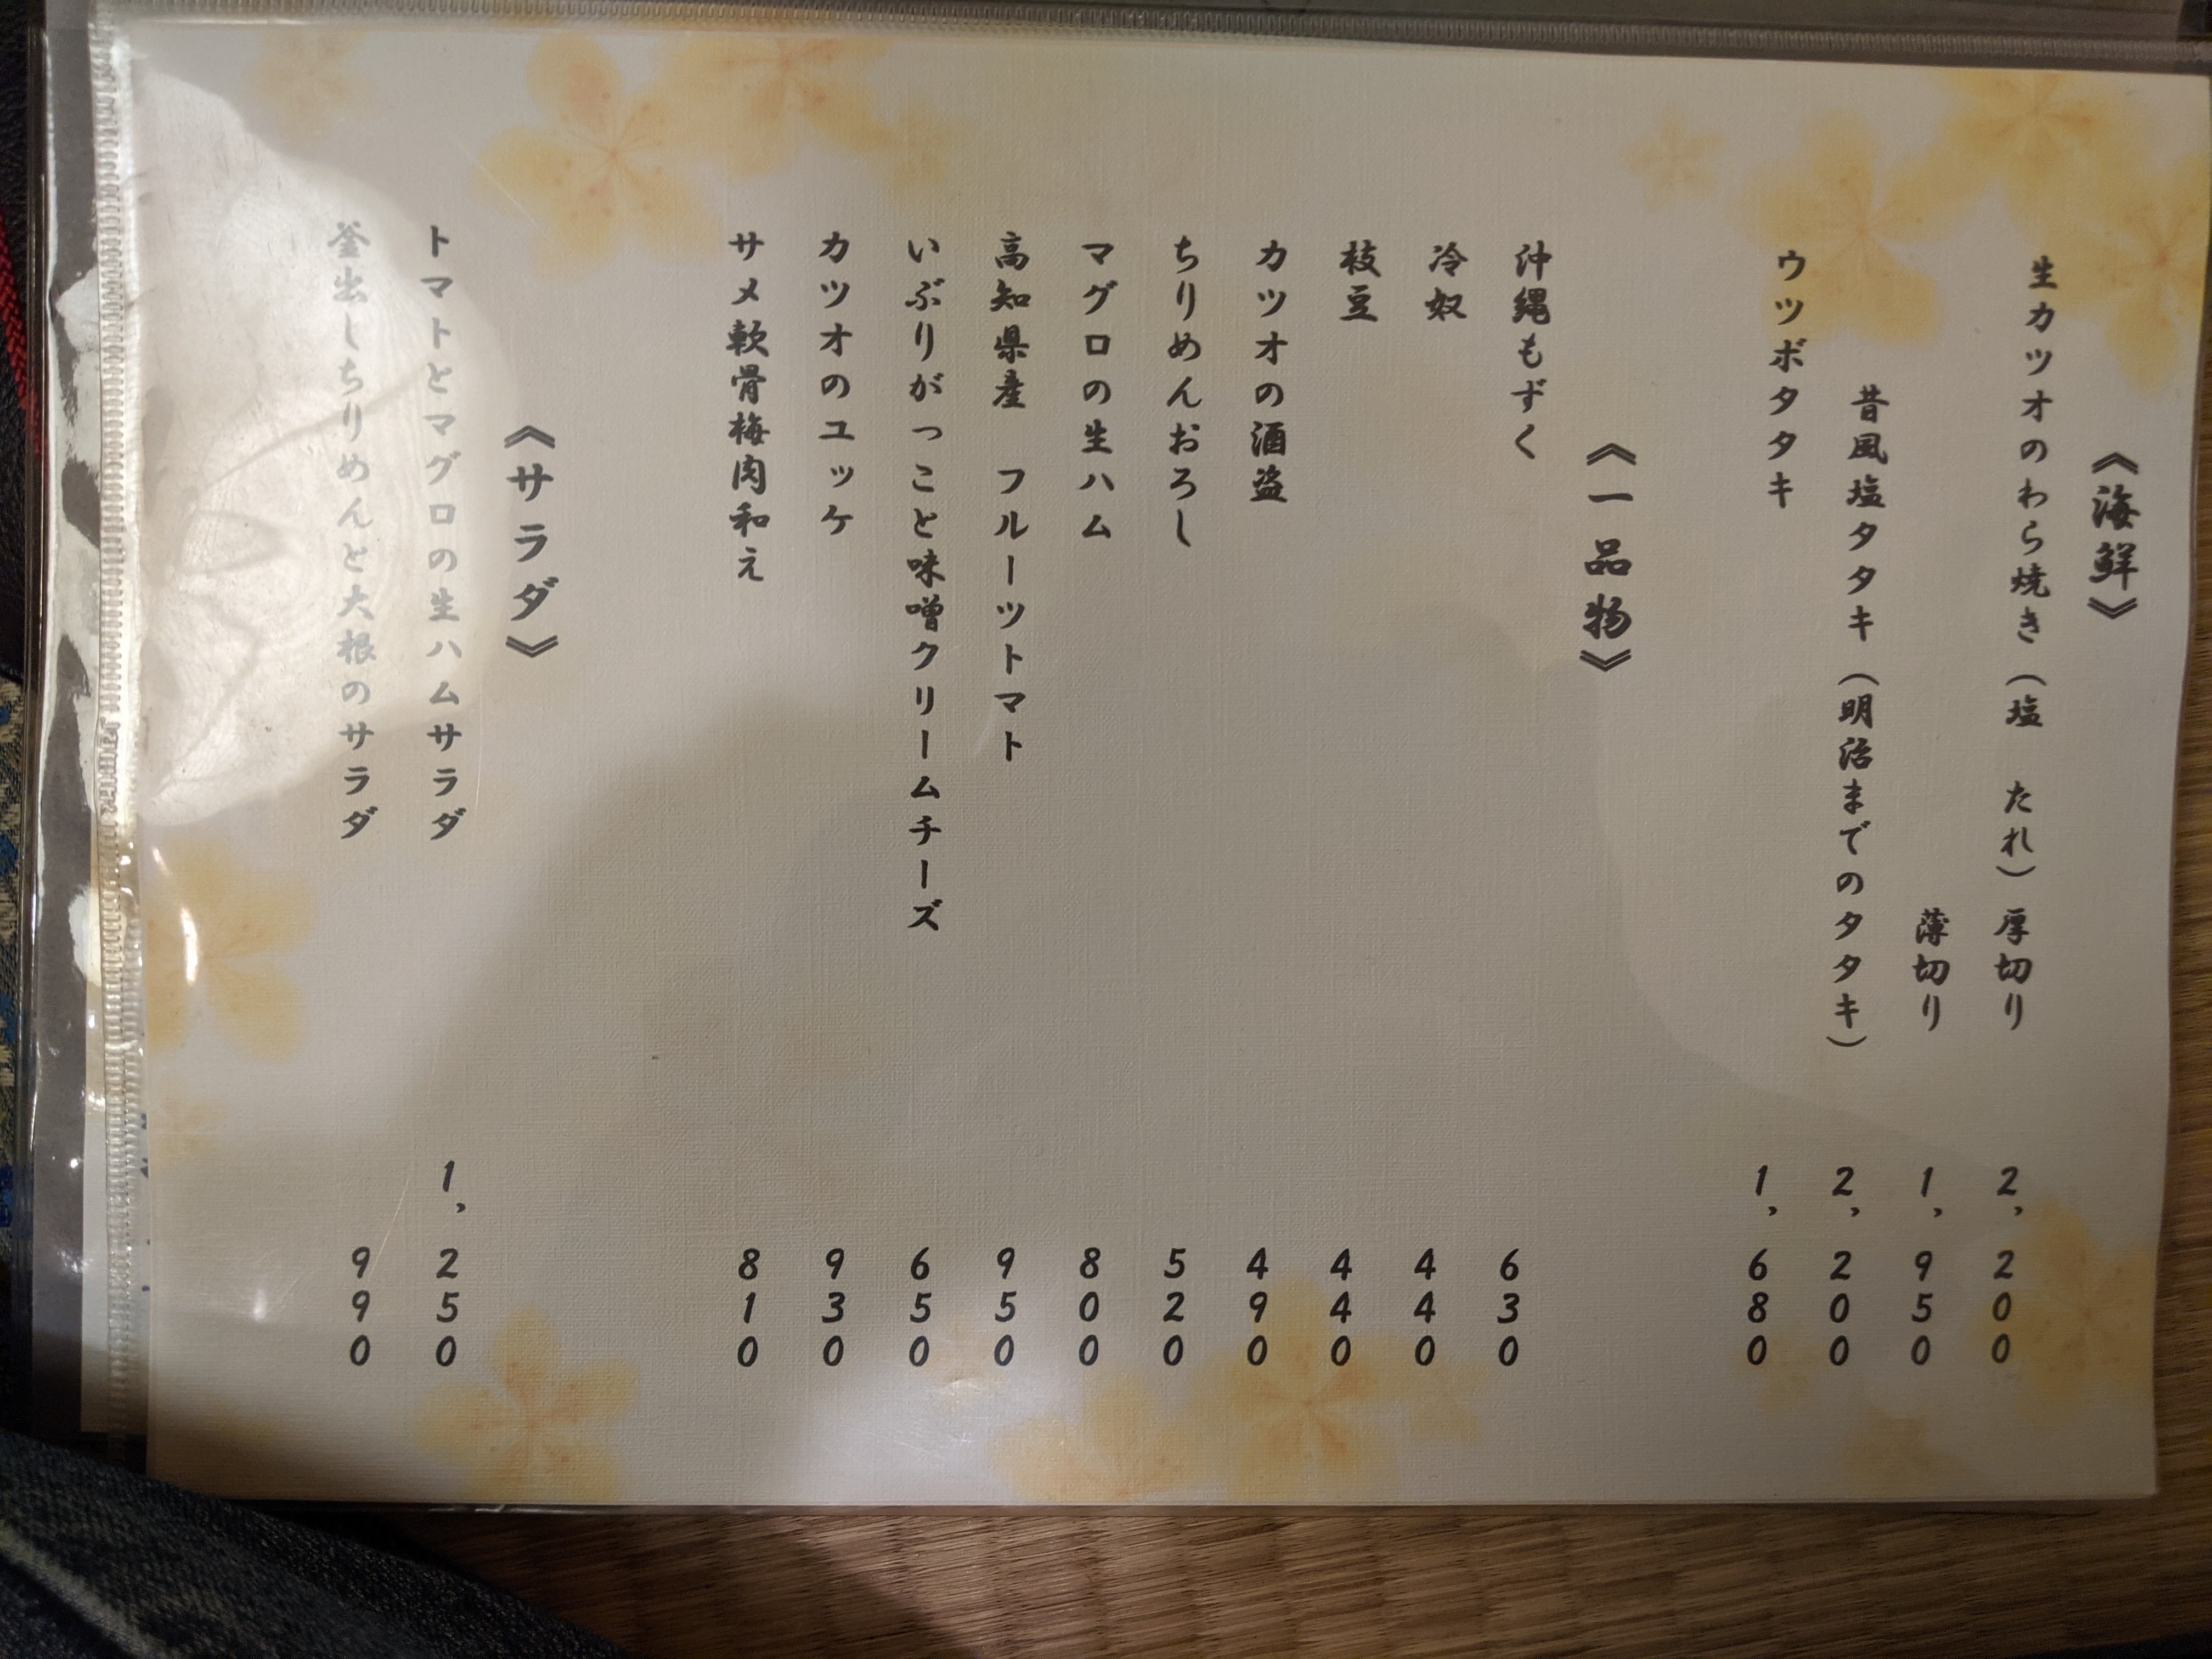 《海鮮》
生カツオのわら焼き（塩　たれ）厚切り　2,200
薄切り　1,950
昔風塩タタキ（明治までのタタキ）　2,200
ウツボタタキ　1,680
《一品物》
沖縄もずく　630
冷奴　440
枝豆　440
カツオの酒盗　490
ちりめんおろし　520
マグロの生ハム　800
高知県産　フルーツトマト　950
いぶりがっこと味噌クリームチーズ　650
カツオのユッケ　930
サメ軟骨梅肉和え　810
《サラダ》
トマトとマグロの生ハムサラダ　1,250
釜出しちりめんと大根のサラダ　990